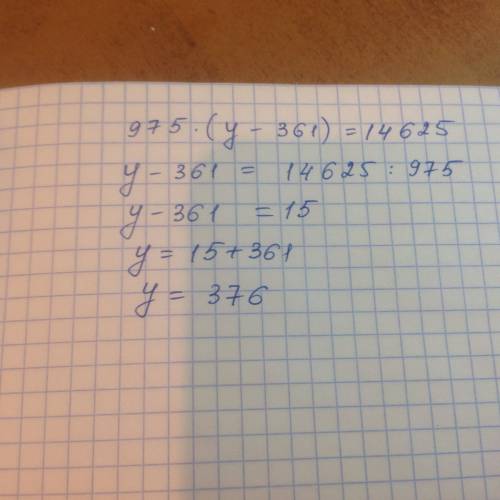 975 · (y - 361) = 14625
y - 361 = 14625 : 975
y - 361 = 15
y = 15 + 361
y = 376